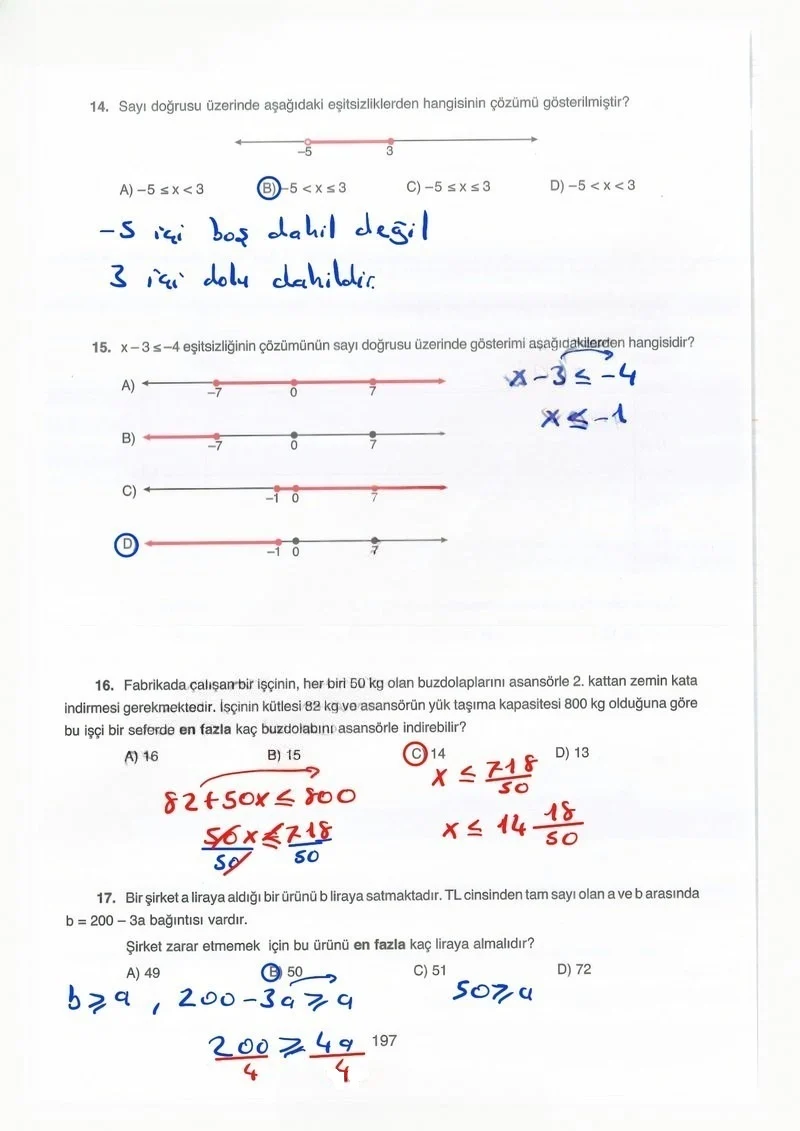 14. Sayı doğrusu üzerinde aşağıdaki eşitsizliklerden hangisinin çözümü gösterilmiştir?
-5 3
A) -5 ≤ x < 3 B) -5 < x ≤ 3 C) -5 ≤ x ≤ 3 D) -5 < x < 3
-5 içi boş dahil değil
3 içi dolu dahildir.
15. x - 3 ≤ -4 eşitsizliğinin çözümünün sayı doğrusu üzerinde gösterimi aşağıdakilerden hangisidir?
x - 3 ≤ -4
A) -7 0 7
x ≤ -1
B) -7 0 7
C) -1 0 7
D -1 0 7
16. Fabrikada çalışan bir işçinin, her biri 50 kg olan buzdolaplarını asansörle 2. kattan zemin kata
indirmesi gerekmektedir. İşçinin kütlesi 82 kg ve asansörün yük taşıma kapasitesi 800 kg olduğuna göre
bu işçi bir seferde en fazla kaç buzdolabını asansörle indirebilir?
A) 16 B) 15 C) 14 D) 13
82 + 50x ≤ 800 x ≤ 718/50
50x/50 ≤ 718/50 x ≤ 14 18/50
17. Bir şirket a liraya aldığı bir ürünü b liraya satmaktadır. TL cinsinden tam sayı olan a ve b arasında
b = 200 – 3a bağıntısı vardır.
Şirket zarar etmemek için bu ürünü en fazla kaç liraya almalıdır?
A) 49 B) 50 C) 51 D) 72
b ≥ a , 200 - 3a ≥ a 50 ≥ a
200/4 ≥ 4a/4
197